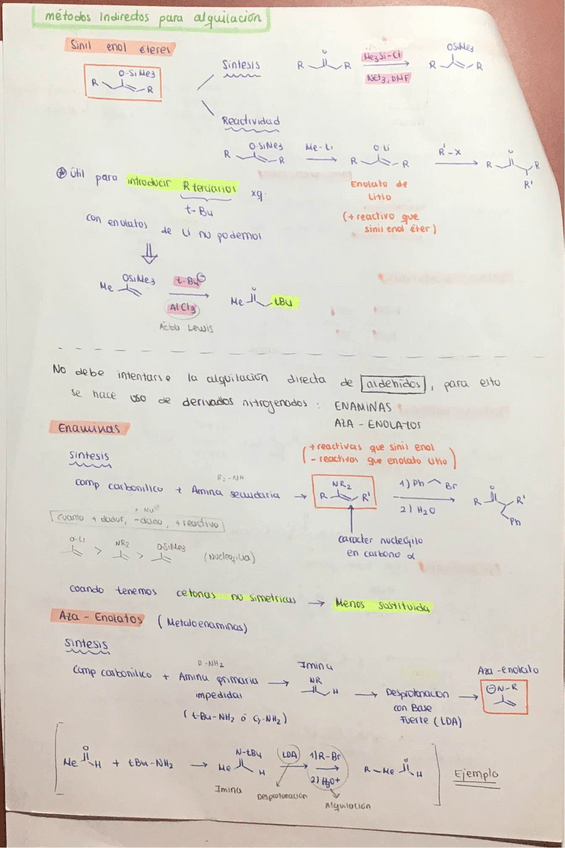 métodos Indirectos para alquilación
Sinil enol éteres
O-SiMe3
R R
Síntesis
O
R R
Me3Si-Cl
NEt3, DMF
OSiMe3
R R
Reactividad
O-SiMe3
R R
Me-Li
O-Li
R R
R'-X
O
R R
R'
Enolato de
Litio
(+ reactivo que
sinil enol éter)
útil para introducir R terciarios xq.
t-Bu
con enolatos de Li no podemos
OSiMe3
Me
t-Bu
AlCl3
Ácido Lewis
O
Me tBu
No debe intentarse la alquilación directa de aldehídos, para esto
se hace uso de derivados nitrogenados: ENAMINAS
AZA - ENOLATOS
Enaminas
(+ reactivas que sinil enol
- reactivas que enolato litio)
síntesis
R2-NH
comp carbonílico + Amina secundaria →
NR2
R R'
1) Ph Br
2) H2O
O
R R'
Ph
carácter nucleófilo
en carbono α
cuanto + dador, -ácido, + reactivo
O-Li > NR2 > OSiMe3 (nucleófilo)
cuando tenemos cetonas no simétricas → Menos sustituida
Aza - Enolatos (Metaloenaminas)
síntesis
comp carbonílico + Amina primaria
impedidas
(t-Bu-NH2 ó Cy-NH2)
Imina
NR
H
→ Desprotonación
con Base
Fuerte (LDA)
Aza-enolato
N-R
O
Me H + tBu-NH2 →
N-tBu
Me H
Imina
LDA
Desprotonación
1) R-Br
2) H3O+
Alquilación
O
R-Me H
Ejemplo